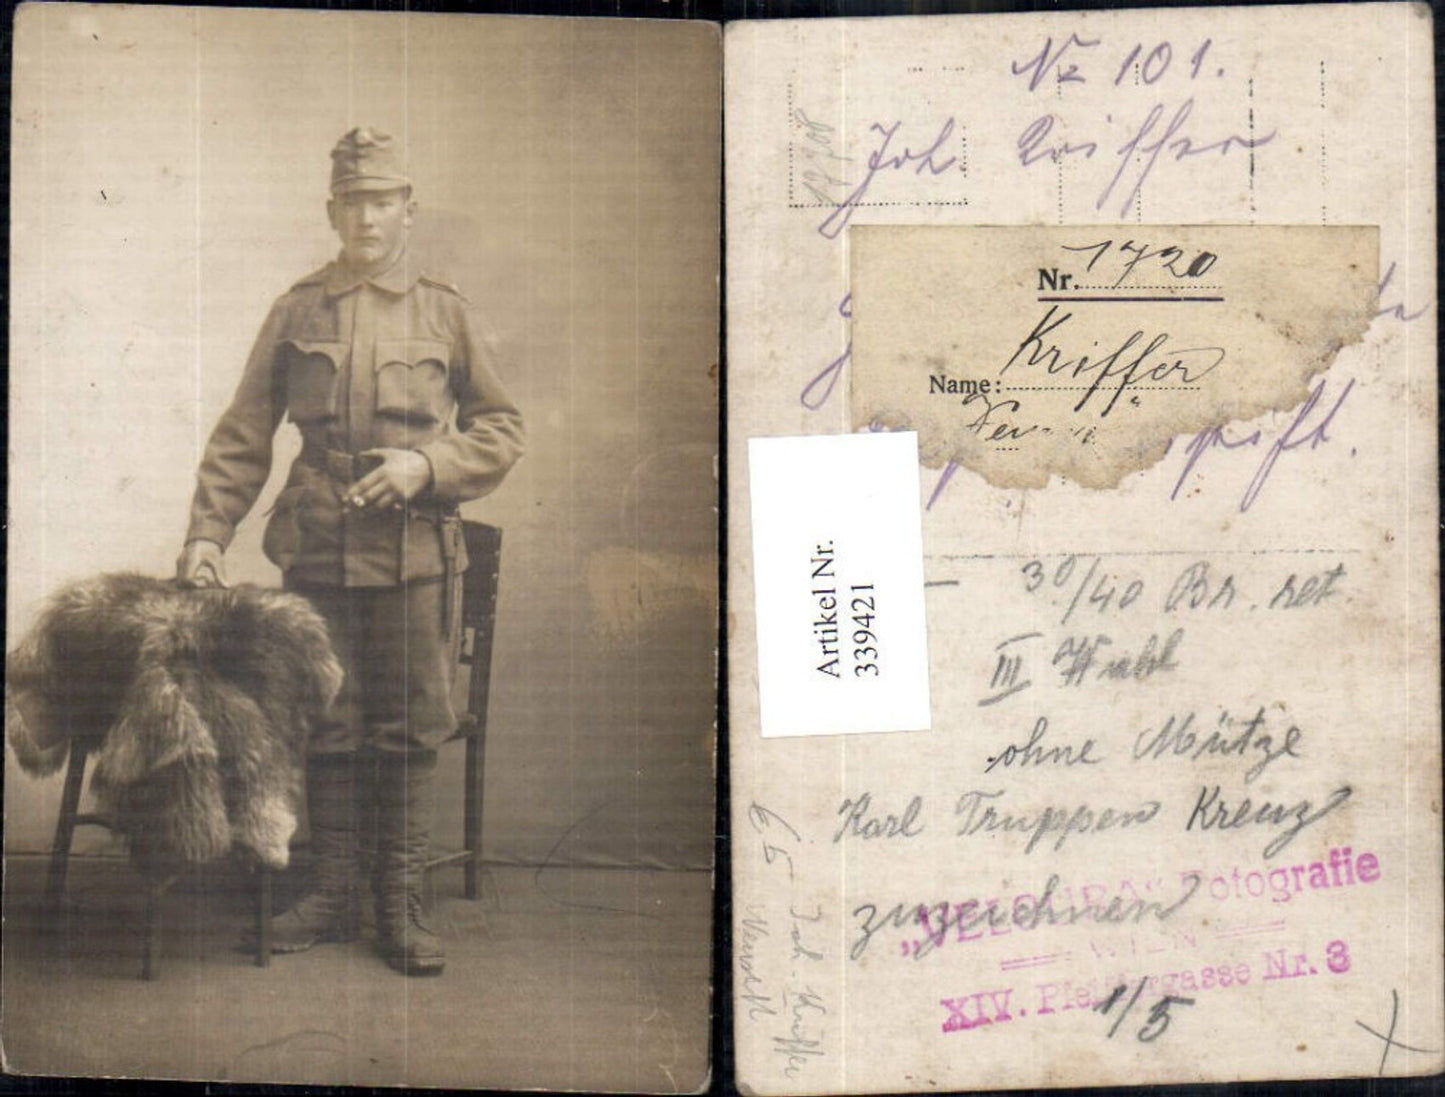 No 101.
Joh. Kriffer
Nr. 1720
Name: Kriffer
Artikel Nr.
339421
30/40 Br. ret.
III Wahl
ohne Mütze
Karl Truppen Kreuz
zuzeichnen
Fotografie
WIEN
XIV. Nr. 3
1/5
Joh. Kriffer